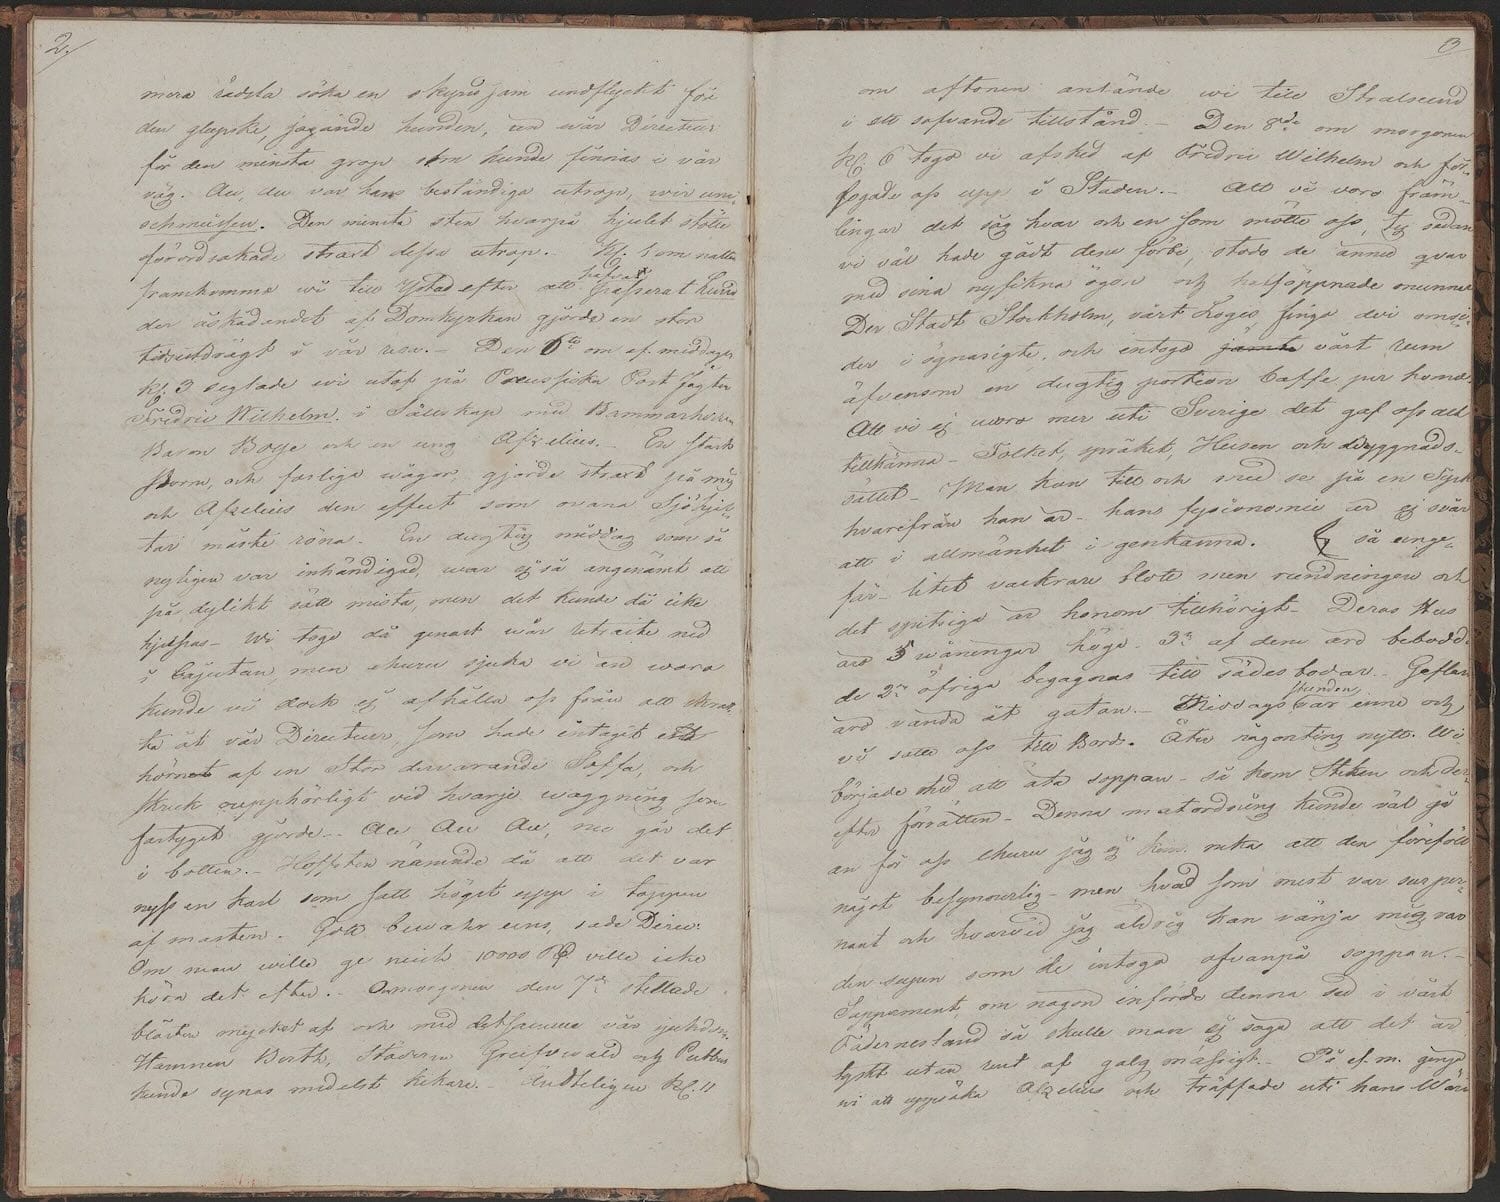 2.
mera rädsla söka en skyndsam undflyckt för
den glupske, jagande hunden, än vår Directeur
för den minsta grop som kunde finnas i vår
väg. Au, au var hans beständiga utrop, wir um-
schmeissen. Den minsta sten hvarpå hjulet stötte
förordsakade straxt dessa utrop. Kl. 1 om natten
framkommo wi till Ystad efter att hafva passerat Lund
der åskådandet af Domkyrkan gjorde en stor
tidsutdrägt i vår resa. Den 6te om ef. middagen
kl. 3 seglade wi utaf på Preussiska Post Jagten
Fredric Wilhelm. i Sällskap med Kammarherren
Baron Boije och en ung Afzelius. En stark
storm, och farliga wågor, gjorde straxt på mig
och Afzelius den effect som ovana Sjöhjel-
tar måste röna. En dugtig middag som så
nyligen var inhändigad, war ej så angenämt att
på dylikt sätt mista, men det kunde då icke
hjelpas. Wi togo då genast vår retraite ned
i Cajutan, men ehuru sjuka vi än woro
kunde vi dock ej afhålla oss från att skrat-
ta åt vår Directeur, som hade intagit ett
hörn af en Stor dervarande Soffa, och
skrek oupphörligt vid hvarje waggning som
fartyget gjorde. Au Au Au, nu går det
i botten. Hoffsten nämnde då att det var
nyss en karl som satt högst upp i toppen
af masten. Gott bewahr uns, sade Direct.
Om man wille ge mich 10000 Rd ville icke
höra det efter. Om morgonen den 7de stillade
blåsten mycket af och med detsamma vår sjukdom.
Hamnen Berth, Städerna Greifswald och Putbus
kunde synas medelst kikare. Ändteligen Kl. 11
3
om aftonen anlände wi till Stralsund
i ett sofvande tillstånd. Den 8de om morgonen
Kl. 6 togo vi afsked af Fredric Wilhelm och för-
fogade oss upp i Staden. Att vi voro främ-
lingar det såg hvar och en som mötte oss, Ty sedan
vi väl hade gådt dem förbi, stodo de ännu qvar
med sina nyfikna ögon och halföppnade munnar
Der Stadt Stockholm, vårt Logis fingo vi omsi-
der i ögnasigte, och intogo jämte vårt rum
äfvensom en dugtig portion Caffe per homme.
Att vi ej woro mer uti Sverige det gaf oss allt
tillkänna. Folket, språket, Husen och Byggnads-
sättet. Man kan till och med se på en Tysk
hvarifrån han är. hans fysionomie är ej svår
att i allmänhet i genkänna. så unge-
fär litet vackrare blott men rundningen och
det spetsiga är honom tillhörigt. Deras Hus
äro 5 våningar höga. 3ne af dem äro bebodd
de 2ne öfriga begagnas till sädesbodar. Gaflar
äro vända åt gatan. Middags stunden var inne och
vi satte oss till Bords. Åter någonting nytt. Wi
började med att äta soppan. så kom Steken och der-
efter förrätten. Denna matordning kunde väl gå
an för oss ehuru jag ej kan neka att den föreföll
något besynnerlig. men hvad som mest var surpre-
nant och hvarvid jag aldrig kan vänja mig, var
den supen som de intogo ofvanpå soppan.
Sapperment, om någon införde denna sed i vårt
Fädernesland så skulle man ej säga att det är
tyskt utan rent af galg mässigt. På ef. m. gingo
wi att uppsöka Afzelius och träffade uti hans Wärd